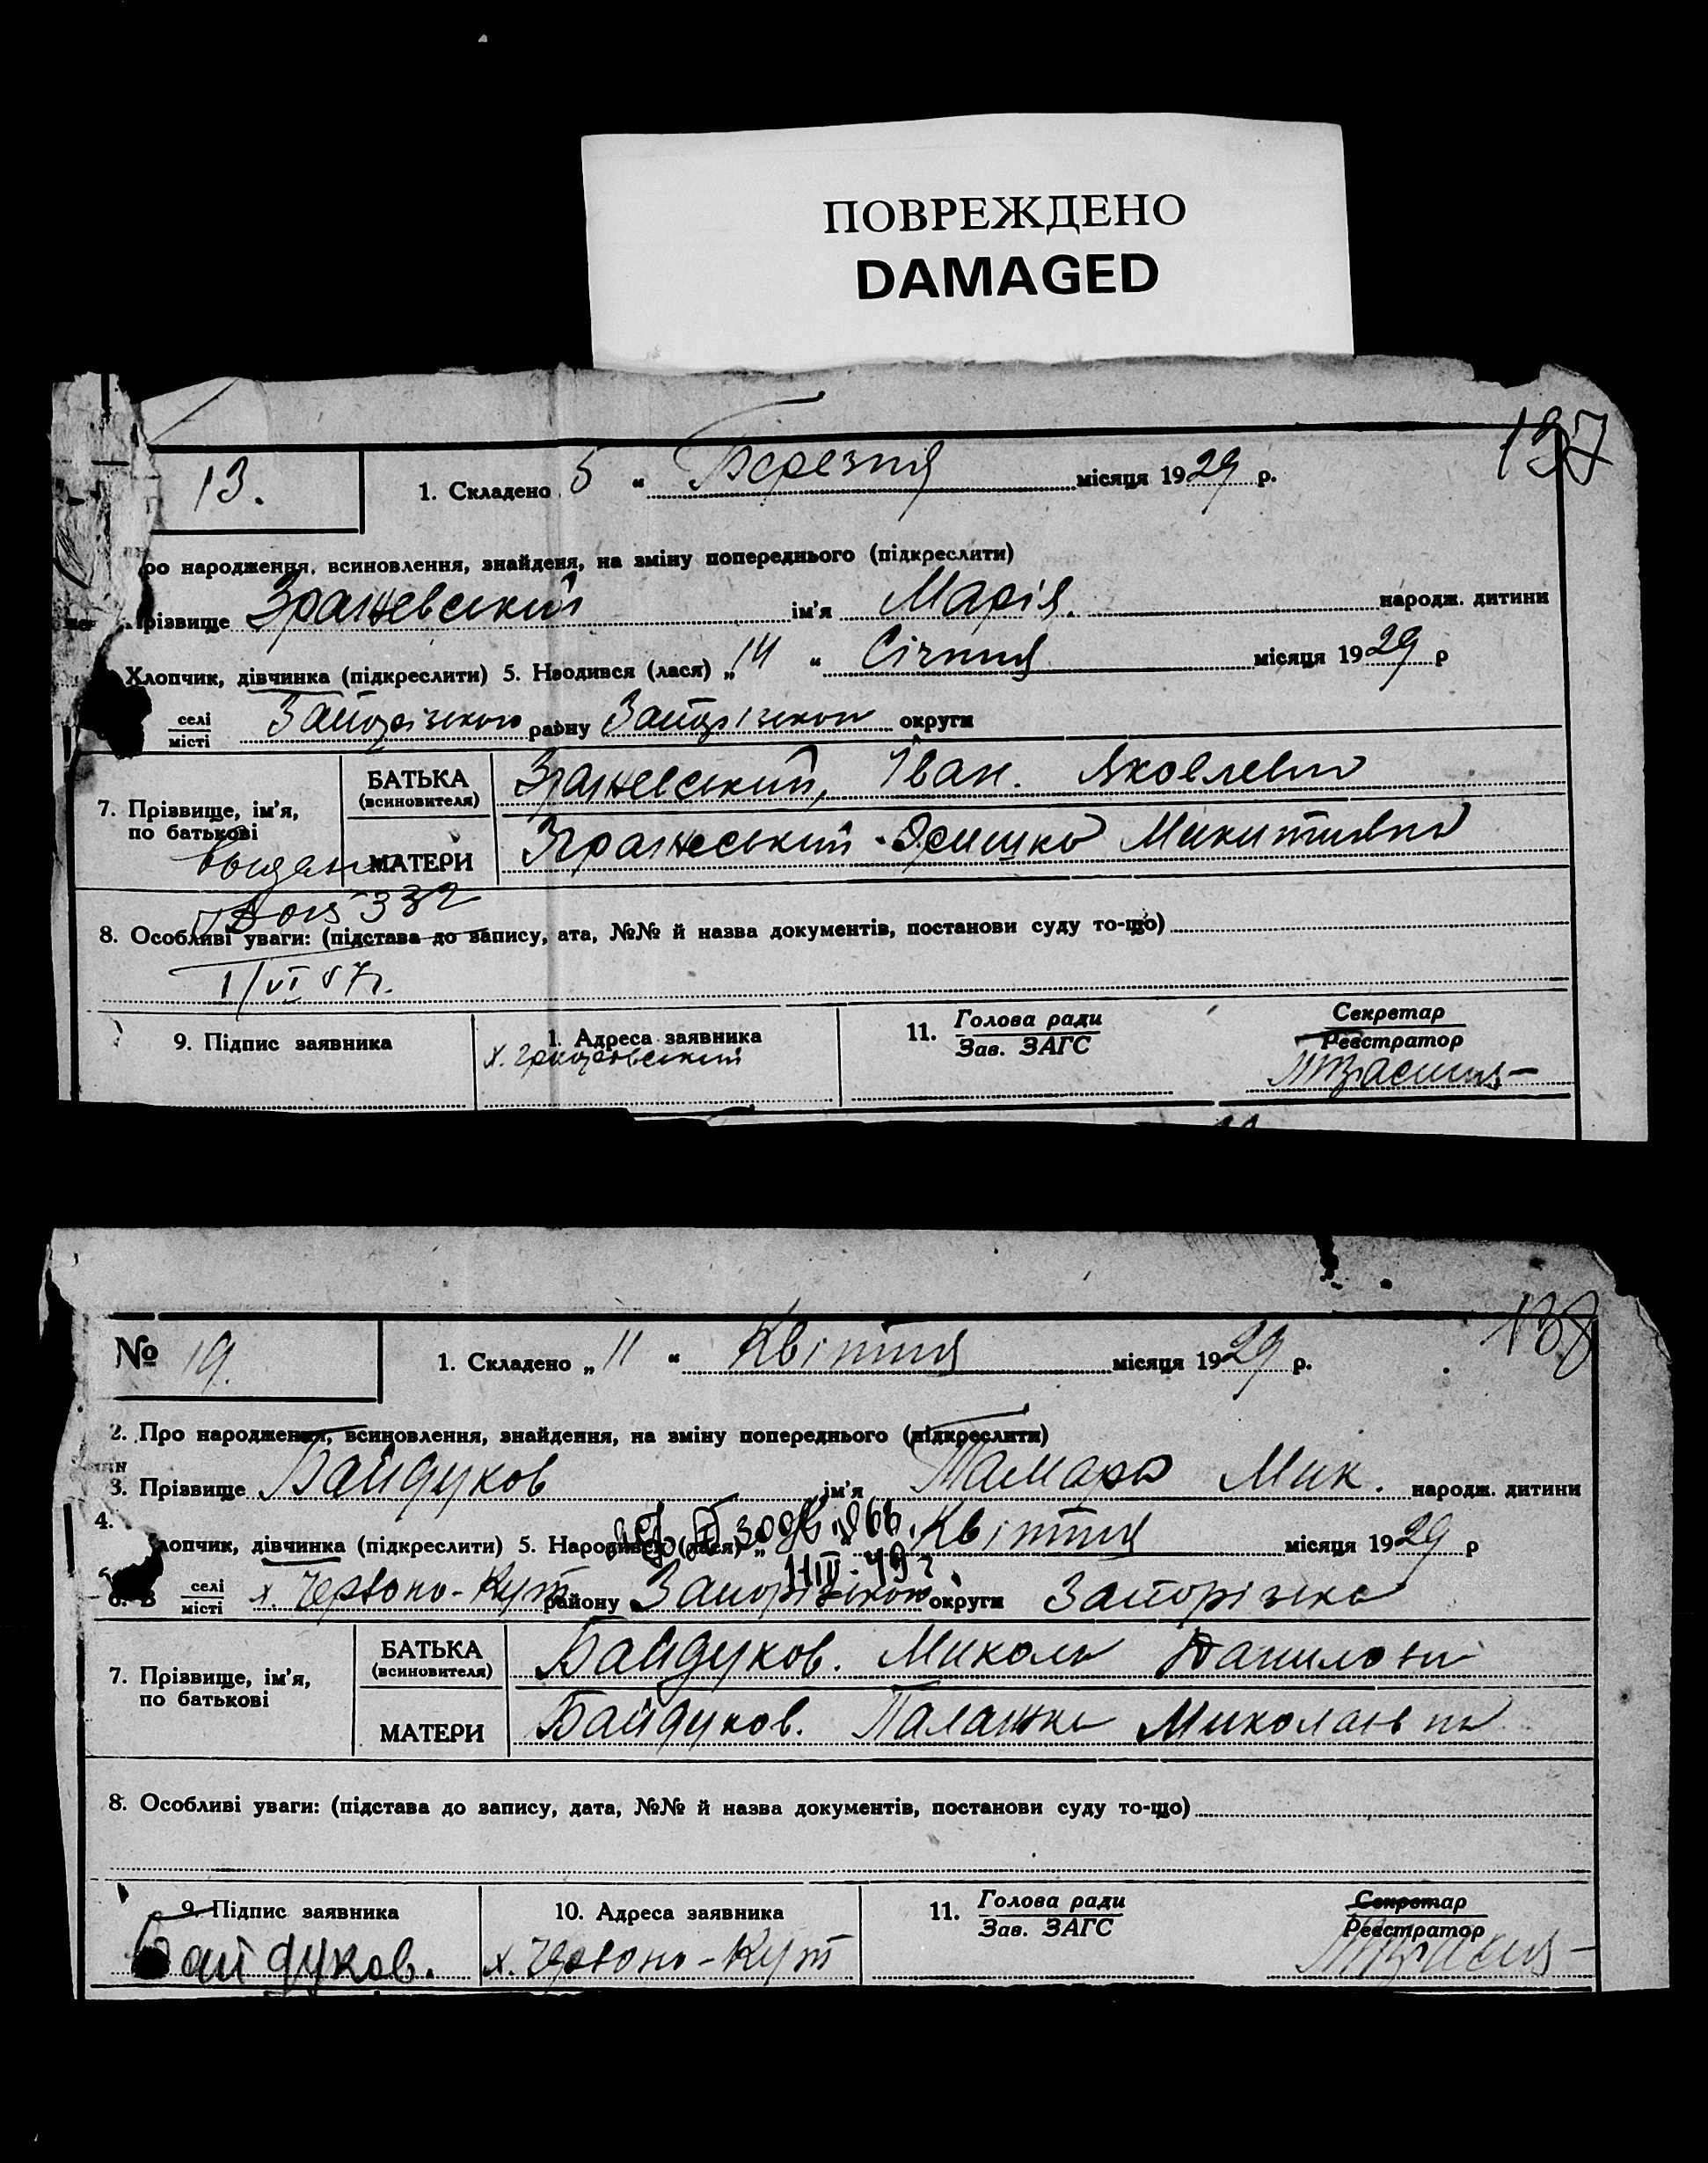 ПОВРЕЖДЕНО
DAMAGED
137
13.
1. Складено 5 “ Березня місяця 1929 р.
ро народження, всиновлення, знайденя, на зміну попереднього (підкреслити)
різвище Зражевський ім'я Марія. народж. дитини
Хлопчик, дівчинка (підкреслити) 5. Нводився (лася) „14 “ Січння місяця 1929 р
селі
місті Запорізького раіну Запорізької округи
7. Прізвище, ім'я,
по батькові
БАТЬКА
(всиновителя)
Зражевський, Іван. Яковлевич
МАТЕРИ
Зражеський Микитивна
332
8. Особливі уваги: (підстава до запису, ата, №№ й назва документів, постанови суду то-що)
1/VI 57г.
9. Підпис заявника
1. Адреса заявника
х.
11. Голова ради
Зав. ЗАГС
Секретар
Реєстратор
138
№ 19.
1. Складено „11 “ Квітня місяця 1929 р.
2. Про народження, всиновлення, знайдення, на зміну попереднього (підкреслити)
3. Прізвище Байдуков ім'я Тамара Мик. народж. дитини
4.
лопчик, дівчинка (підкреслити) 5. Народився (лася) „ Квітня місяця 1929 р
6. В селі
місті х. Червоно-Кут району Запорізького округи Запорізка
7. Прізвище, ім'я,
по батькові
БАТЬКА
(всиновителя)
Байдуков. Микола Данилович
МАТЕРИ
Байдуков. Палажка Миколаївна
8. Особливі уваги: (підстава до запису, дата, №№ й назва документів, постанови суду то-що)
9. Підпис заявника
Байдуков.
10. Адреса заявника
х. Червоно-Кут
11. Голова ради
Зав. ЗАГС
Секретар
Реєстратор